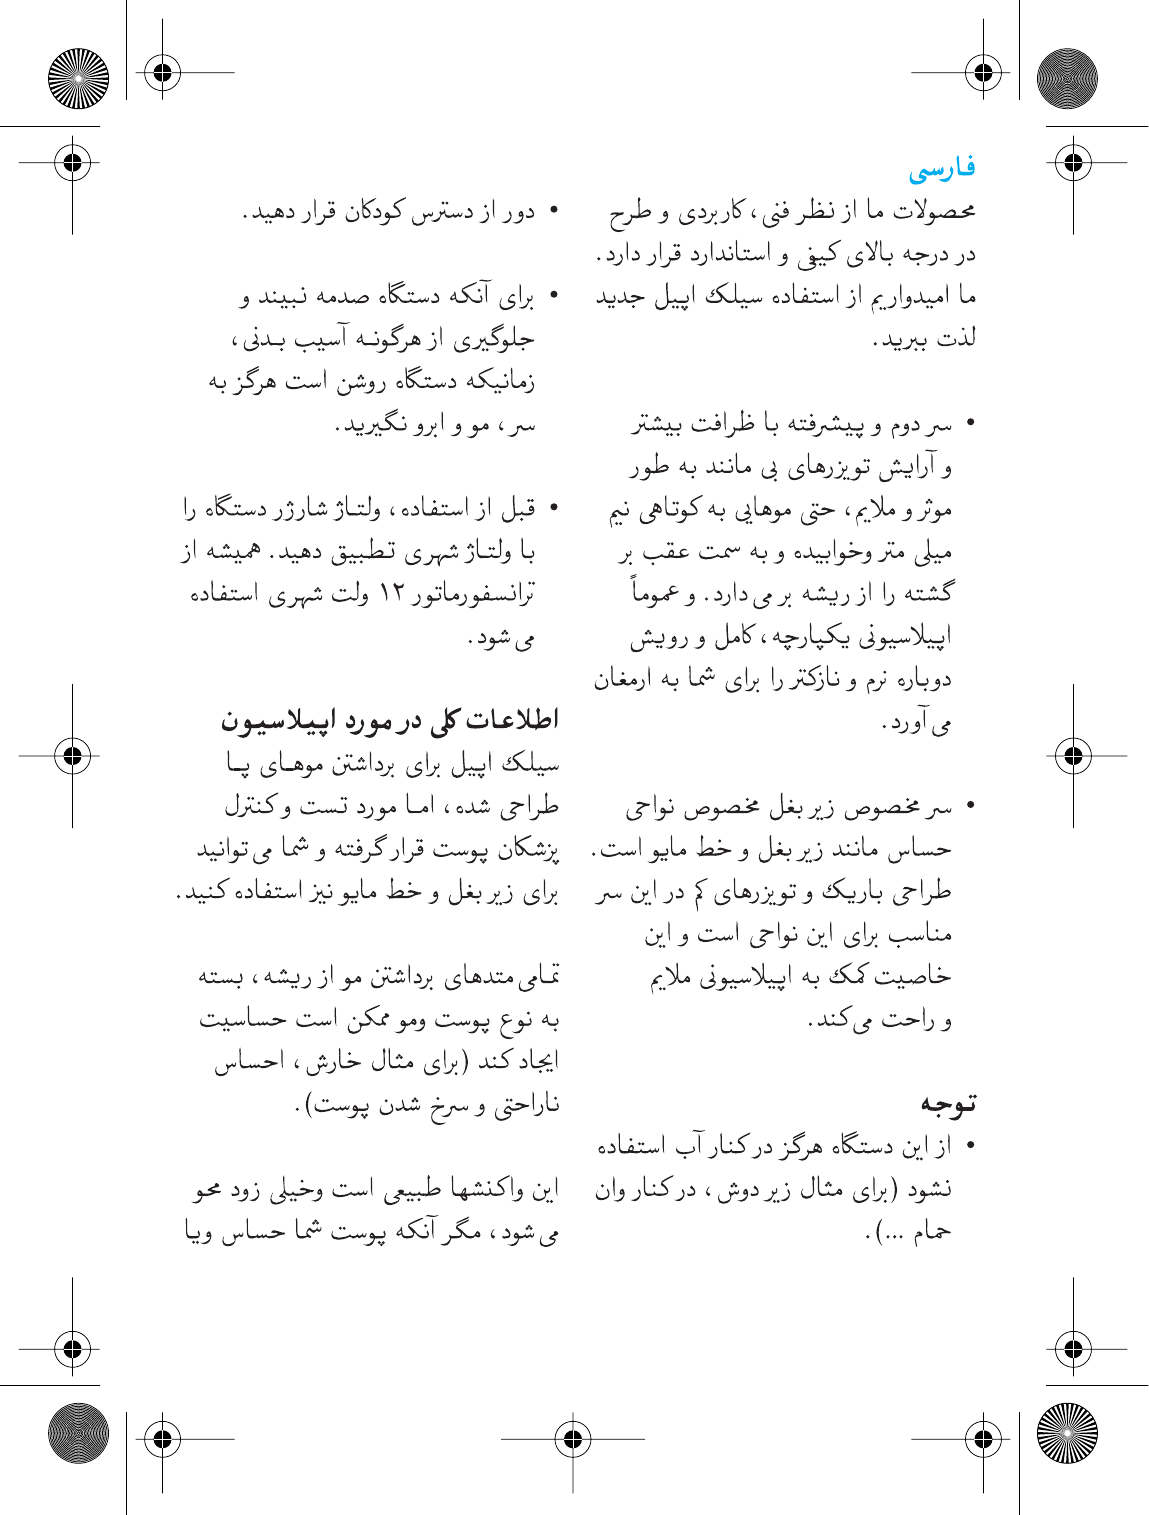 فارسی
محصولات ما از نظر فنی، کاربردی و طرح
در درجه بالای کیفی و استاندارد قرار دارد.
ما امیدواریم از استفاده سیلک اپیل جدید
لذت ببرید.
• سر دوم و پیشرفته با ظرافت بیشتر
و آرایش تویزرهای بی مانند به طور
موثر و ملایم، حتی موهایی به کوتاهی نیم
میلی متر وخوابیده و به سمت عقب بر
گشته را از ریشه بر می دارد. و عموماً
اپیلاسیونی یکپارچه، کامل و رویش
دوباره نرم و نازکتر را برای شما به ارمغان
می آورد.
• سر مخصوص زیر بغل مخصوص نواحی
حساس مانند زیر بغل و خط مایو است.
طراحی باریک و تویزرهای کم در این سر
مناسب برای این نواحی است و این
خاصیت کمک به اپیلاسیونی ملایم
و راحت می کند.
توجه
• از این دستگاه هرگز در کنار آب استفاده
نشود (برای مثال زیر دوش، در کنار وان
حمام ...).
• دور از دسترس کودکان قرار دهید.
• برای آنکه دستگاه صدمه نبیند و
جلوگیری از هرگونه آسیب بدنی،
زمانیکه دستگاه روشن است هرگز به
سر، مو و ابرو نگیرید.
• قبل از استفاده، ولتاژ شارژر دستگاه را
با ولتاژ شهری تطبیق دهید. همیشه از
ترانسفورماتور ۱۲ ولت شهری استفاده
می شود.
اطلاعات کلی در مورد اپیلاسیون
سیلک اپیل برای برداشتن موهای پا
طراحی شده، اما مورد تست و کنترل
پزشکان پوست قرار گرفته و شما می توانید
برای زیر بغل و خط مایو نیز استفاده کنید.
تمامی متدهای برداشتن مو از ریشه، بسته
به نوع پوست ومو ممکن است حساسیت
ایجاد کند (برای مثال خارش، احساس
ناراحتی و سرخ شدن پوست).
این واکنشها طبیعی است وخیلی زود محو
می شود، مگر آنکه پوست شما حساس ویا